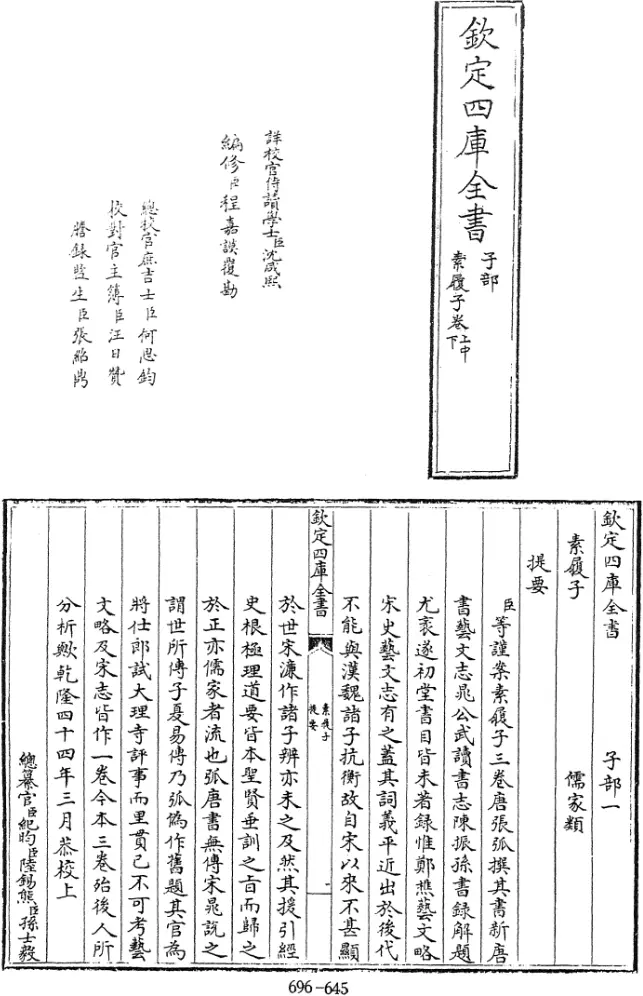 欽定四庫全書
子部
素履子卷上中下
詳校官侍讀學士臣沈咸熙
編修臣程嘉謨覆勘
總校官庶吉士臣何思鈞
校對官主簿臣汪日贊
謄錄監生臣張
欽定四庫全書 子部一
素履子 儒家類
提要
臣等謹案素履子三卷唐張弧撰其書新唐
書藝文志晁公武讀書志陳振孫書録解題
尤袤遂初堂書目皆未著録惟鄭樵藝文略
宋史藝文志有之蓋其詞義平近出於後代
不能與漢魏諸子抗衡故自宋以來不甚顯
欽定四庫全書
素履子
提要
於世宋濂作諸子辨亦未之及然其援引經
史根極理道要皆本聖賢垂訓之旨而歸之
於正亦儒家者流也弧唐書無傳宋晁説之
謂世所傳子夏易傳乃弧偽作舊題其官為
將仕郎試大理寺評事而里貫已不可考藝
文略及宋志皆作一卷今本三卷殆後人所
分析歟乾隆四十四年三月恭校上
總纂官臣紀昀臣陸錫熊臣孫士毅
696-645